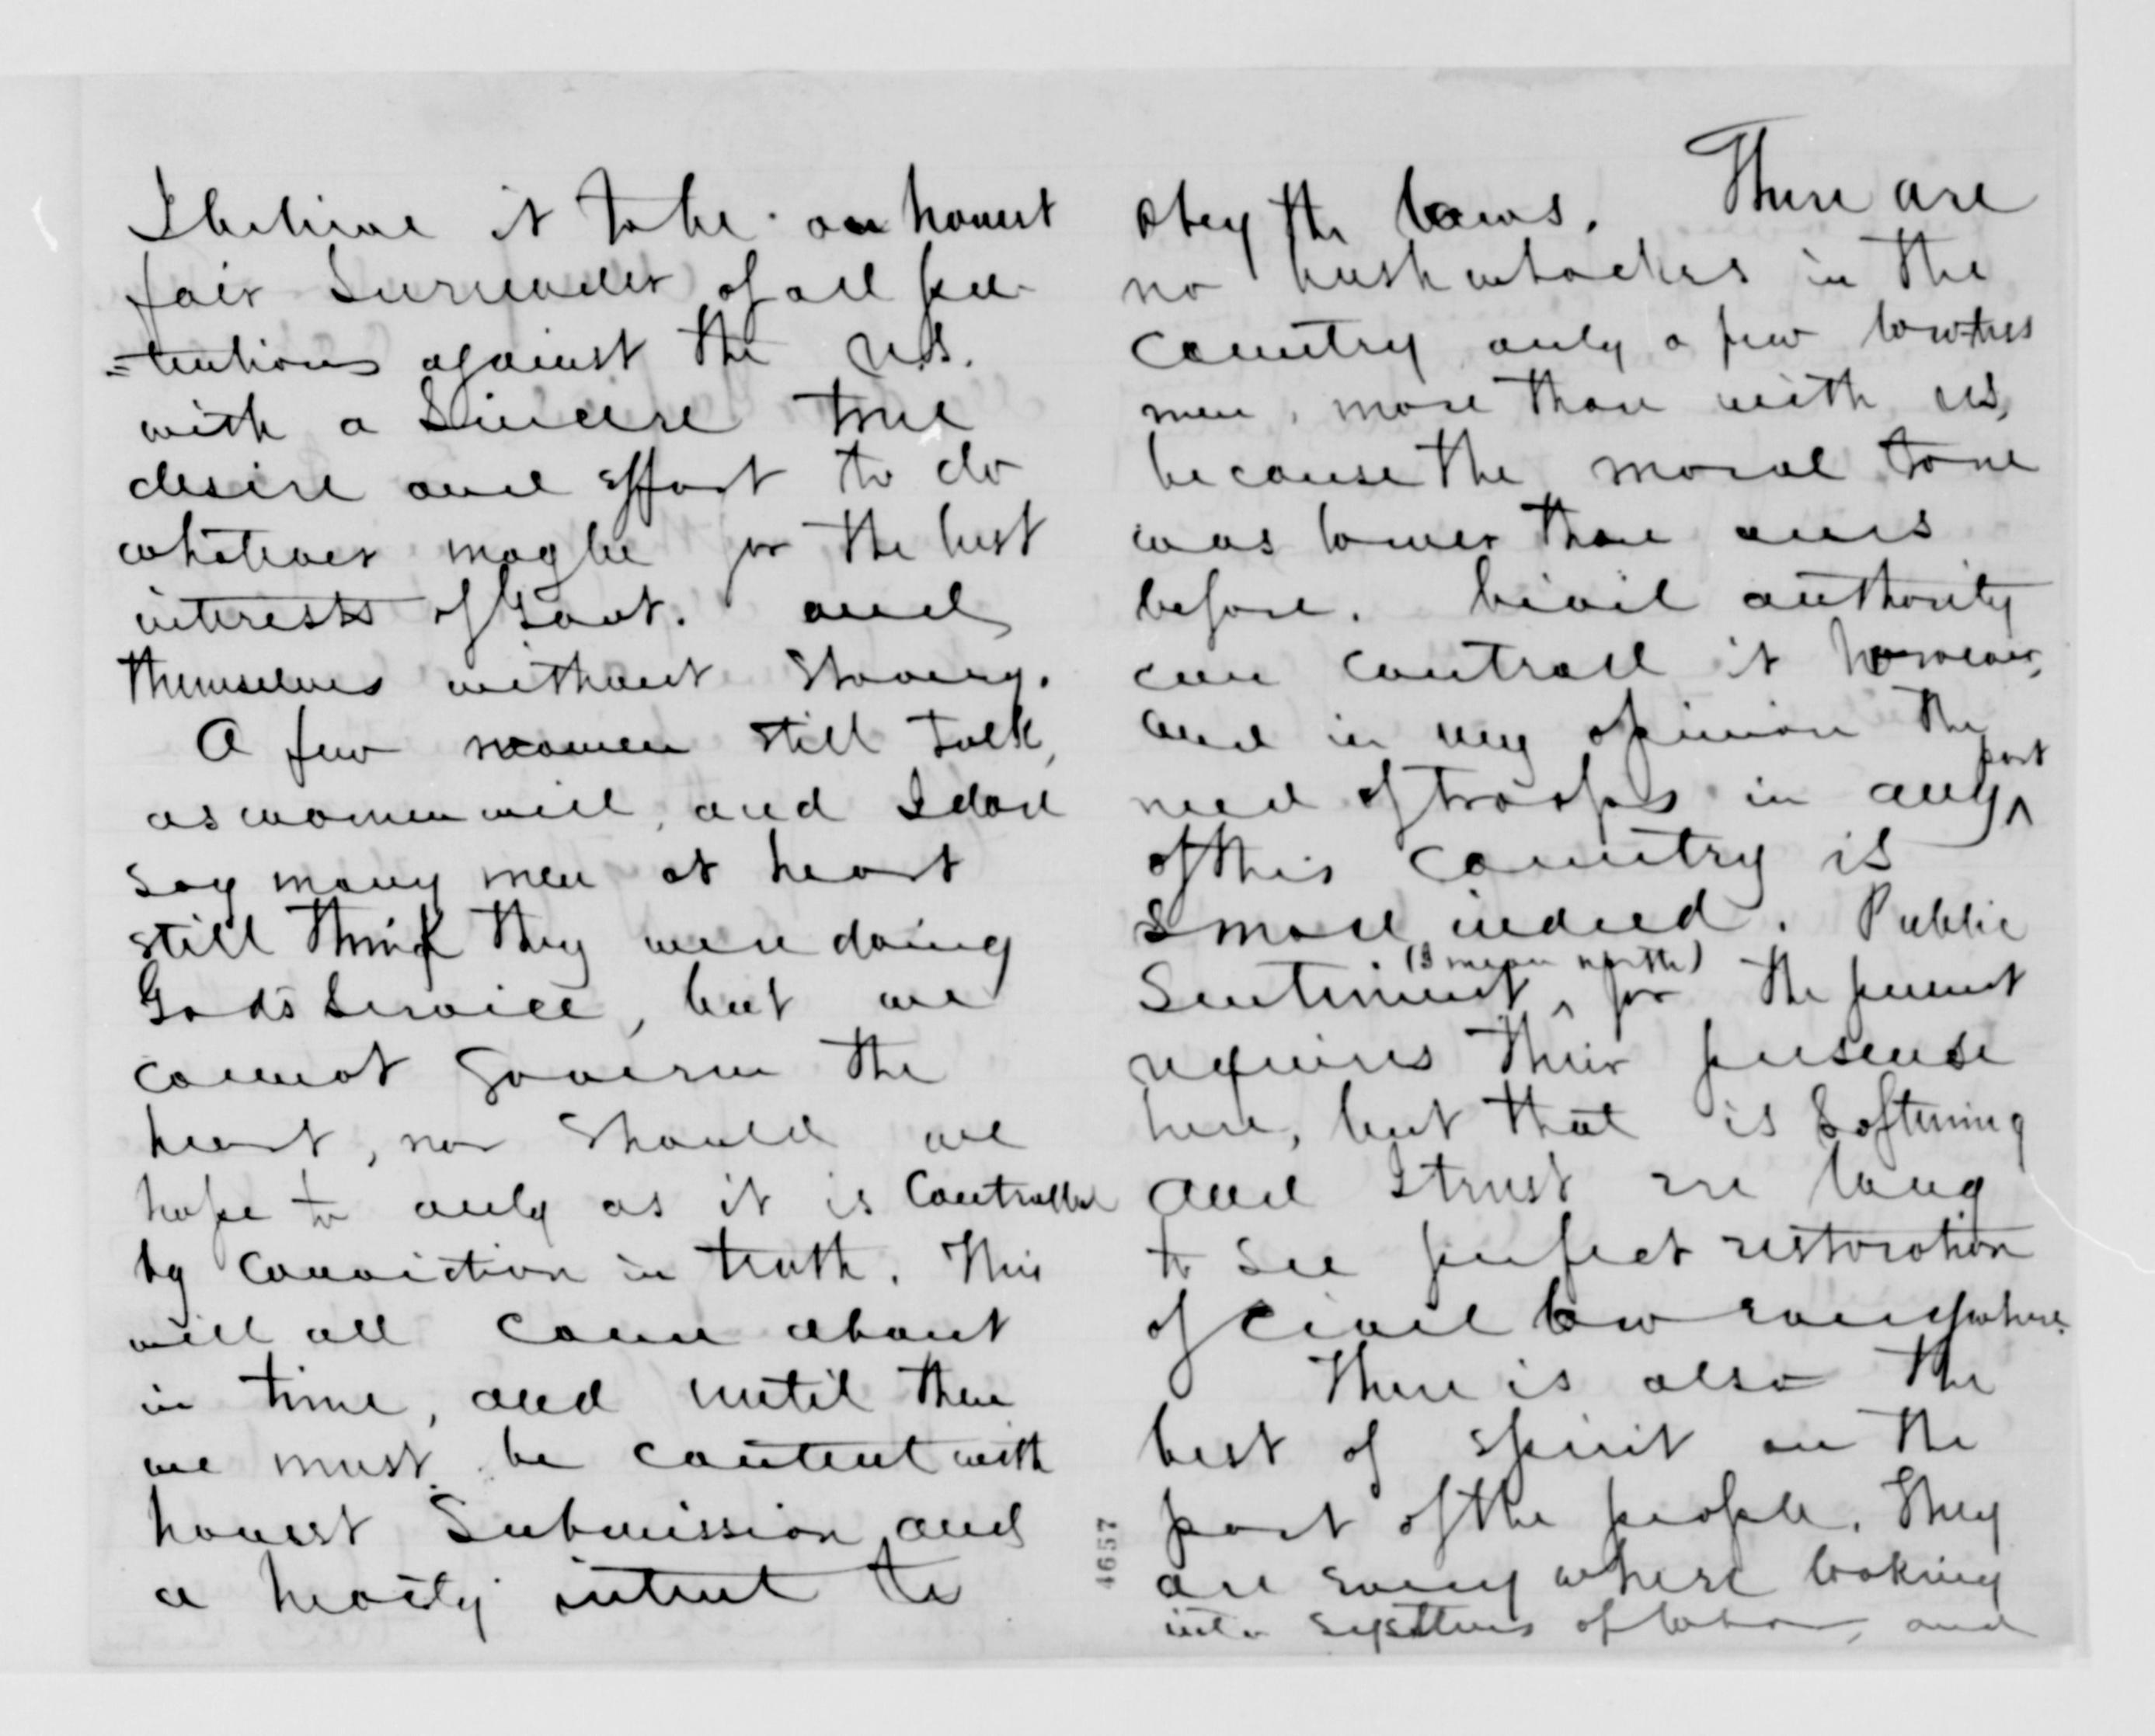 I believe it to be an honest
fair surrender of all pre
=tentions against the U.S.
with a sincere true
desire and effort to do
whatever may be for the best
interests of Govt. and
themselves without Slavery.
A few women still talk,
as women will, and I dare
say many men at heart
still think they were doing
Gods Service, but we
cannot govern the
heart, nor should we
hope to only as it is controlled
by conviction in truth. This
will all come about
in time, and until then
we must be content with
honest submission and
a hearty intent to
obey the laws. There are
no bushwhackers in the
country only a few lawless
men, more than with us,
because the moral tone
was lower than ours
before. Civil authority
can controll it however,
and in my opinion the
need of troops in any part
of this country is
small indeed. Public
Sentiment (I mean north) for the present
requires their presense
here, but that is softening
and I trust ere long
to see perfect restoration
of civil law everywhere.
There is also the
best of spirit on the
part of the people. They
are everywhere looking
into systems of labor, and
4657